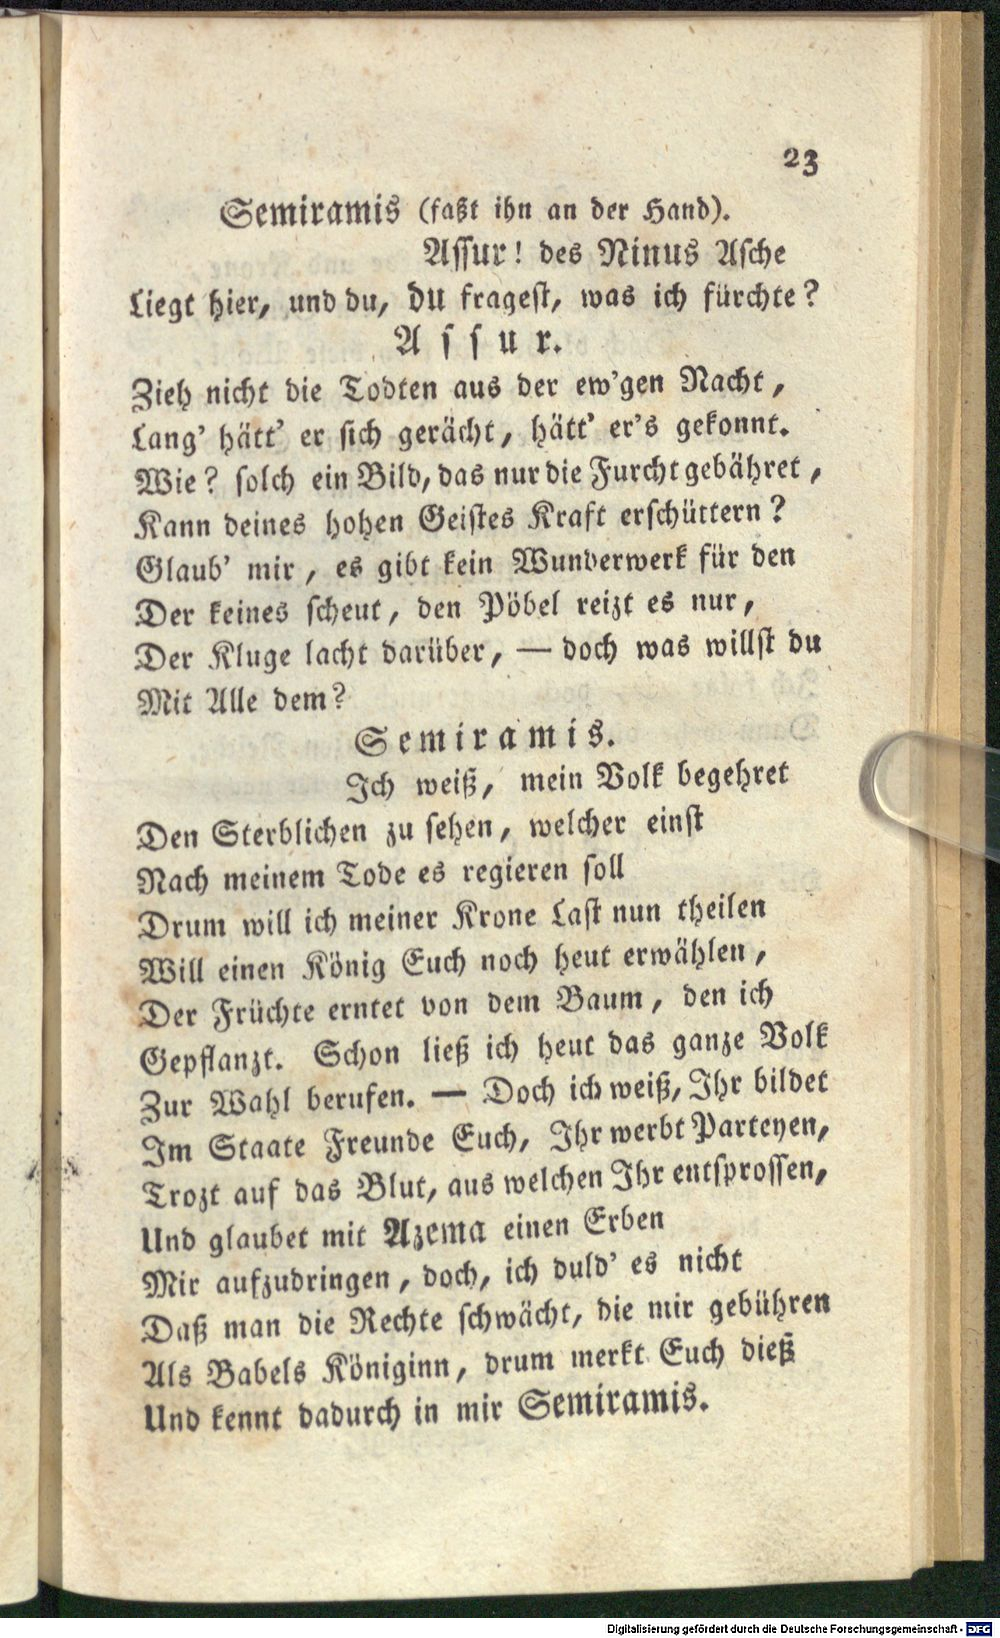 23
Semiramis (faßt ihn an der Hand).
Assur! des Ninus Asche
Liegt hier, und du, du fragest, was ich fürchte?
Assur.
Zieh nicht die Todten aus der ew'gen Nacht,
Lang' hätt' er sich gerächt, hätt' er's gekonnt.
Wie? solch ein Bild, das nur die Furcht gebähret,
Kann deines hohen Geistes Kraft erschüttern?
Glaub' mir, es gibt kein Wunderwerk für den
Der keines scheut, den Pöbel reizt es nur,
Der Kluge lacht darüber, — doch was willst du
Mit Alle dem?
Semiramis.
Ich weiß, mein Volk begehret
Den Sterblichen zu sehen, welcher einst
Nach meinem Tode es regieren soll
Drum will ich meiner Krone Last nun theilen
Will einen König Euch noch heut erwählen,
Der Früchte erntet von dem Baum, den ich
Gepflanzt. Schon ließ ich heut das ganze Volk
Zur Wahl berufen. — Doch ich weiß, Ihr bildet
Im Staate Freunde Euch, Ihr werbt Parteyen,
Trozt auf das Blut, aus welchen Ihr entsprossen,
Und glaubet mit Azema einen Erben
Mir aufzudringen, doch, ich duld' es nicht
Daß man die Rechte schwächt, die mir gebühren
Als Babels Königinn, drum merkt Euch dieß
Und kennt dadurch in mir Semiramis.
Digitalisierung gefördert durch die Deutsche Forschungsgemeinschaft - DFG